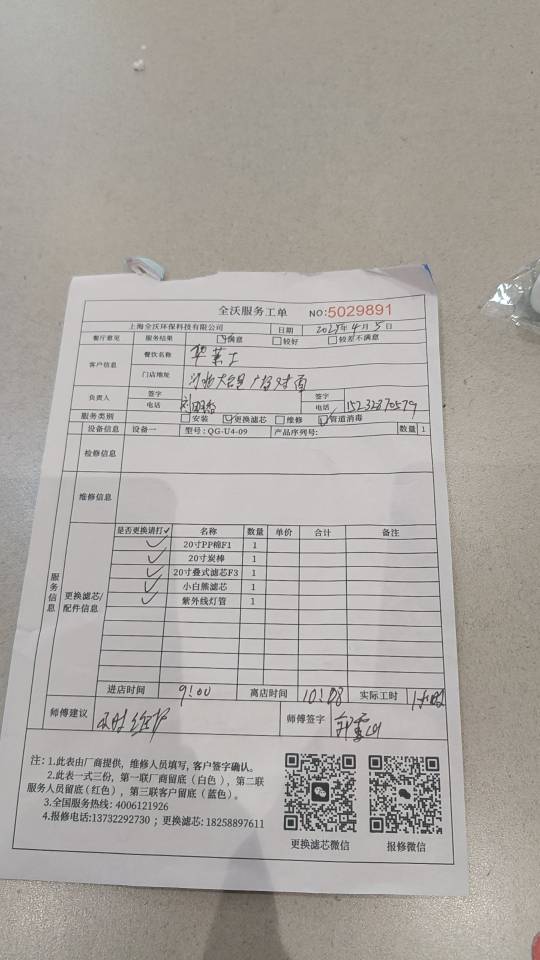 全沃服务工单 NO:5029891
上海全沃环保科技有限公司 日期 2025年4月5日
餐厅意见 服务结果 ☑满意 □较好 □较差不满意
客户信息 餐饮名称 华莱士
门店地址 广场对面
负责人 签字 签字
电话 电话 15232870579
服务类别 □安装 ☑更换滤芯 □维修 ☑管道消毒
设备信息 设备一 型号:QG-U4-09 产品序列号: 数量 1
检修信息
维修信息
服务信息
更换滤芯/配件信息
是否更换请打✓ 名称 数量 单价 合计 备注
✓ 20寸PP棉F1 1
✓ 20寸炭棒 1
✓ 20寸叠式滤芯F3 1
✓ 小白熊滤芯 1
✓ 紫外线灯管 1
进店时间 9:00 离店时间 10:08 实际工时 1小时
师傅建议 及时维护 师傅签字
注:1.此表由厂商提供,维修人员填写,客户签字确认。
2.此表一式三份,第一联厂商留底(白色),第二联
服务人员留底(红色),第三联客户留底(蓝色)。
3.全国服务热线: 4006121926
4.报修电话:13732292730 ; 更换滤芯: 18258897611
更换滤芯微信 报修微信